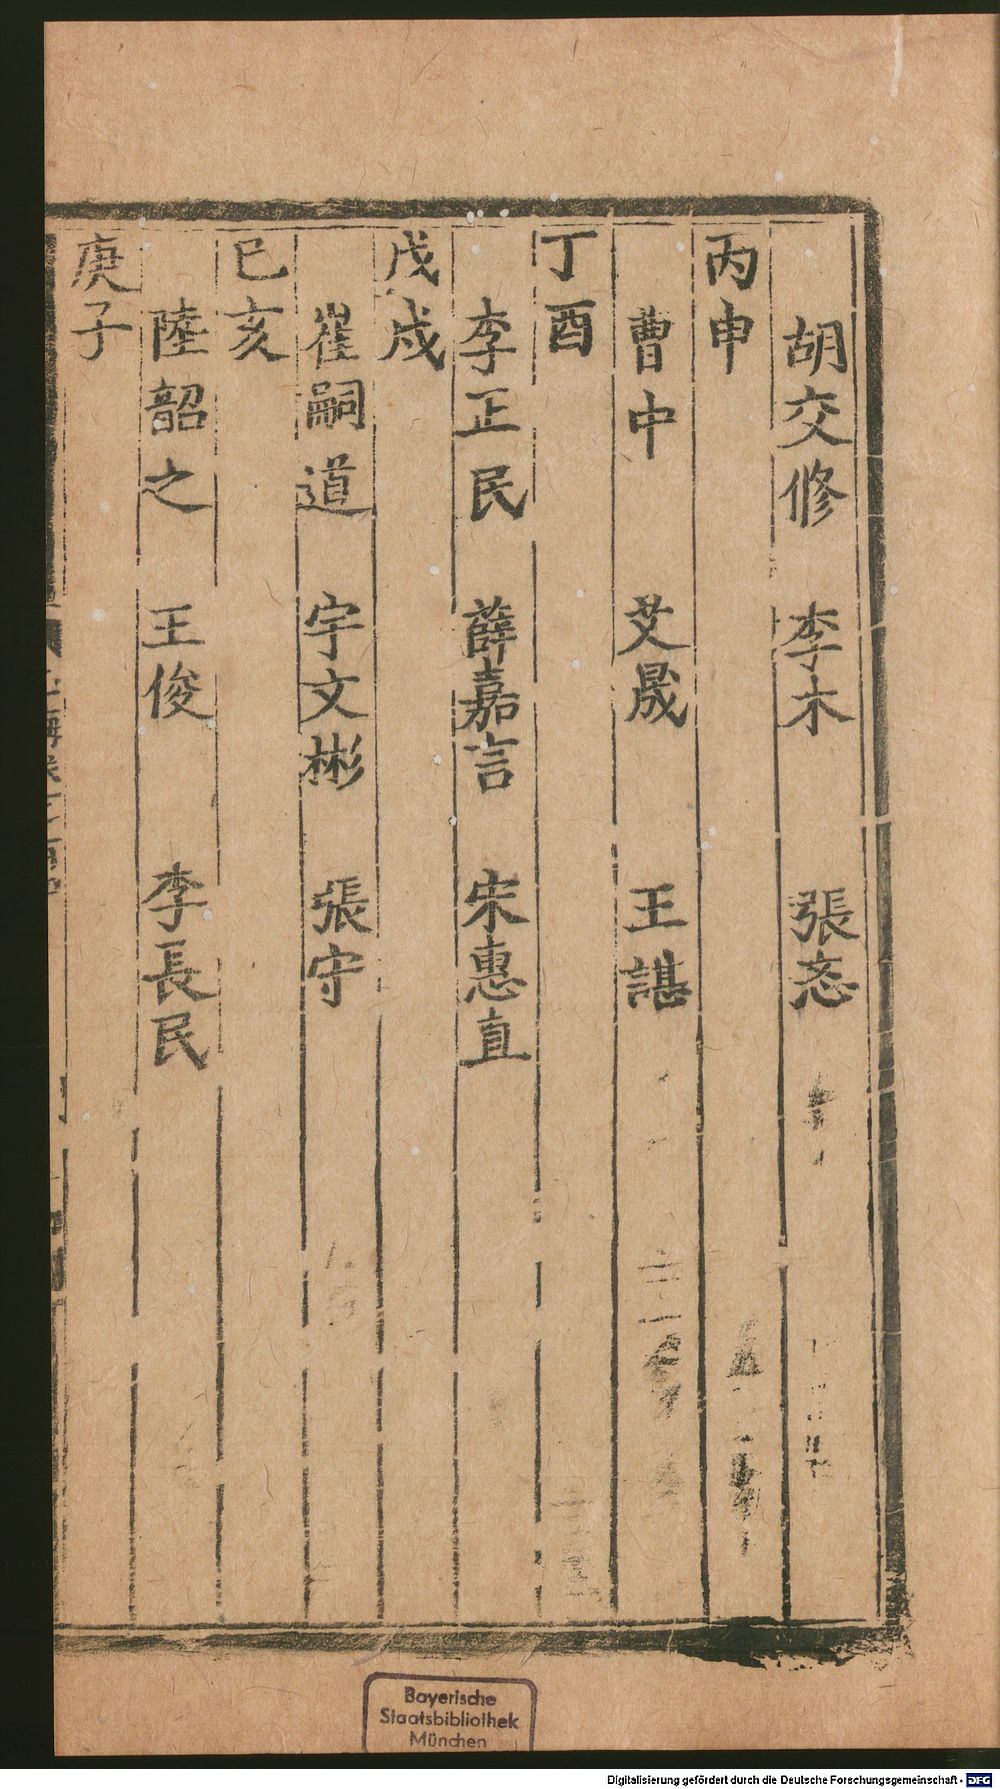 胡交修 李木 張忞
丙申
曹中 艾晟 王諶
丁酉
李正民 薛嘉言 宋惠直
戊戌
崔嗣道 宇文彬 張守
己亥
陸韶之 王俊 李長民
庚子
Bayerische
Staatsbibliothek
München
Digitalisierung gefördert durch die Deutsche Forschungsgemeinschaft - DFG